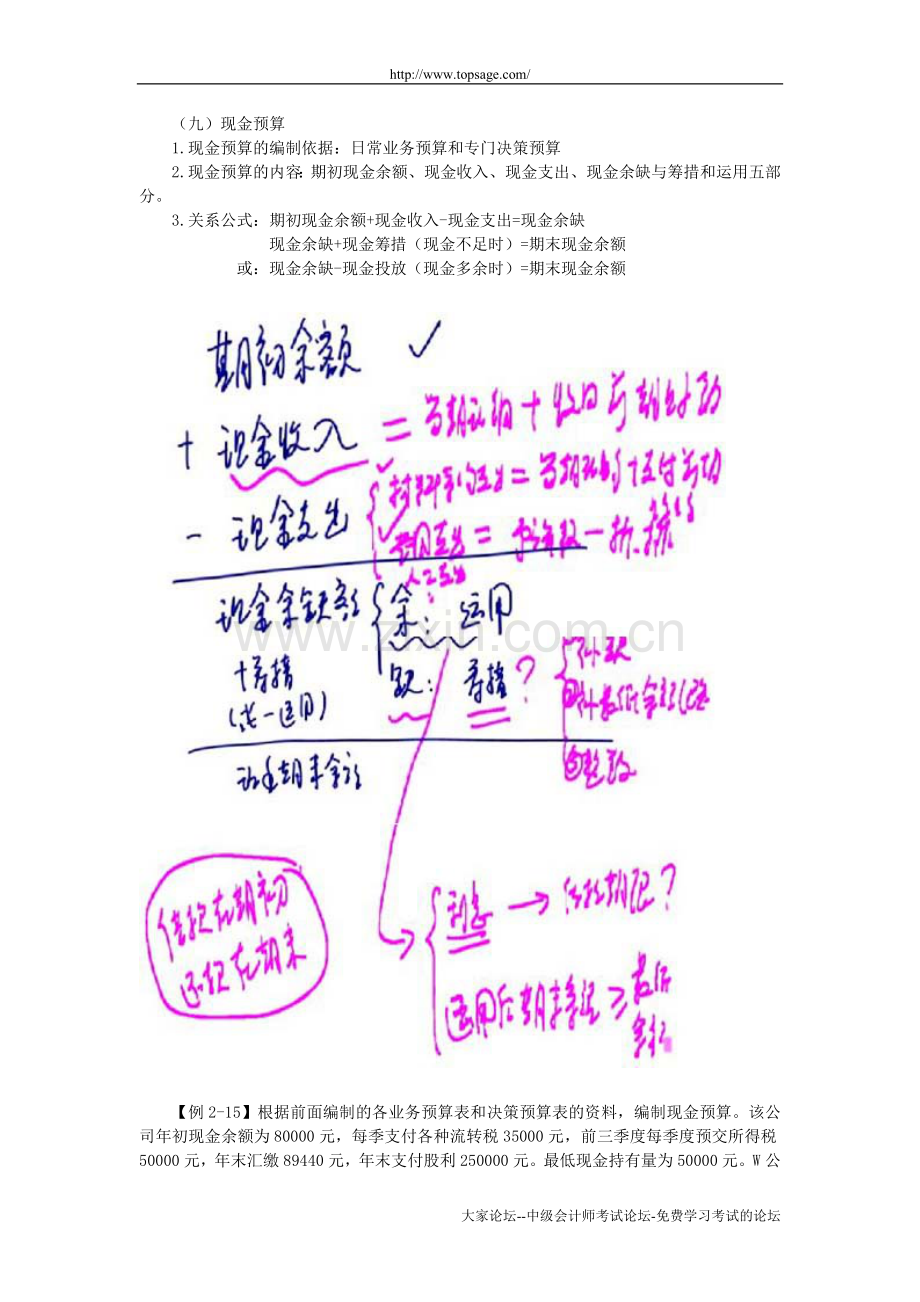 http://www.topsage.com/
（九）现金预算
1.现金预算的编制依据：日常业务预算和专门决策预算
2.现金预算的内容：期初现金余额、现金收入、现金支出、现金余缺与筹措和运用五部
分。
3.关系公式：期初现金余额+现金收入-现金支出=现金余缺
现金余缺+现金筹措（现金不足时）=期末现金余额
或：现金余缺-现金投放（现金多余时）=期末现金余额
期初余额 ✓
+ 现金收入 = 当期现销 + 收回前期
- 现金支出
现金余缺额 余：运用
+筹措 缺：筹措？
(或-运用)
现金期末余额
www.zixin.com.cn
借款在期初
还款在期末
利息 → 借款期限？
运用后期末 ≥ 最低
【例2-15】根据前面编制的各业务预算表和决策预算表的资料，编制现金预算。该公
司年初现金余额为80000元，每季支付各种流转税35000元，前三季度每季度预交所得税
50000元，年末汇缴89440元，年末支付股利250000元。最低现金持有量为50000元。W公
大家论坛--中级会计师考试论坛-免费学习考试的论坛